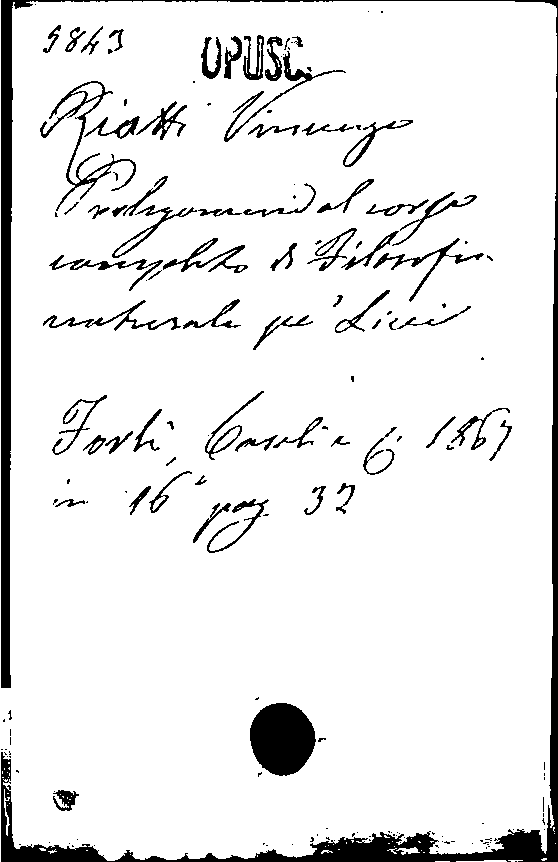 5843 OPUSC.
Riatti Vincenzo
Prolegomeni al corso
completo di Filosofia
naturale pe' Licei
Forlì, Casali e C. 1867
in 16° pag 32